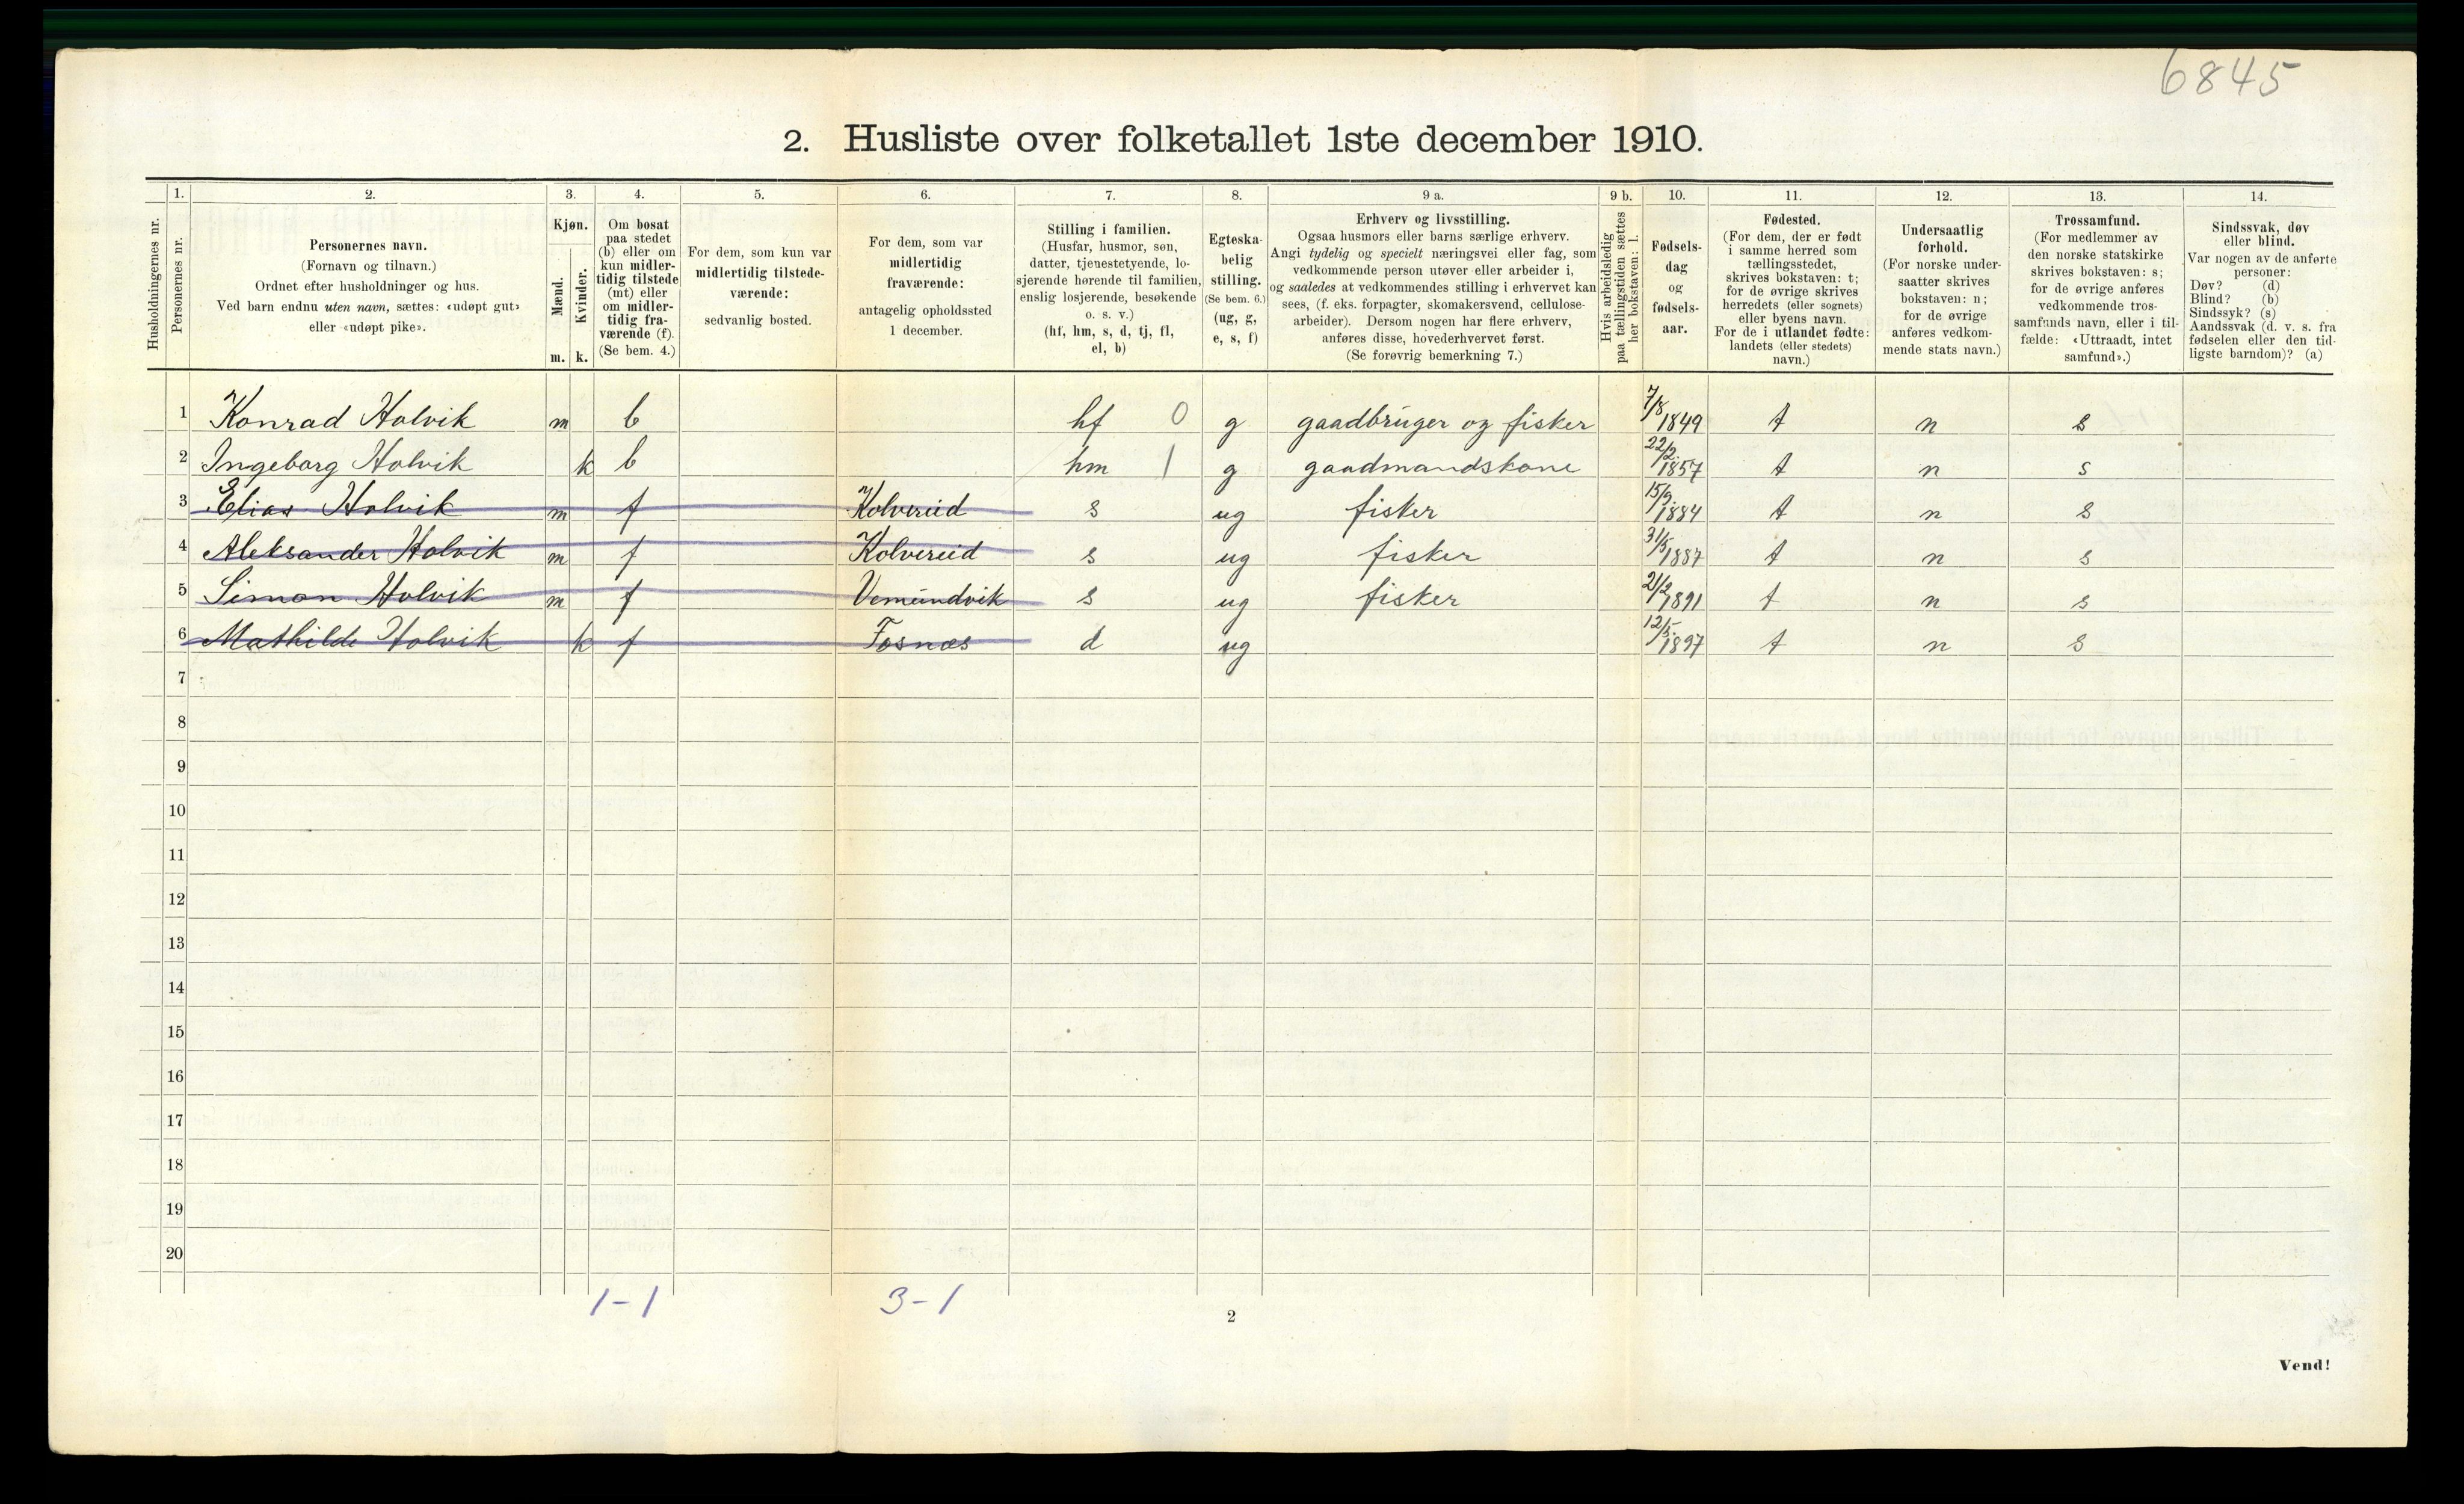 6845
2. Husliste over folketallet 1ste december 1910.
Husholdningernes nr.
1.
Personernes nr.
2.
Personernes navn.
(Fornavn og tilnavn.)
Ordnet efter husholdninger og hus.
Ved barn endnu uten navn, sættes: «udøpt gut»
eller «udøpt pike».
3.
Kjøn.
Mænd.
Kvinder.
m. k.
4.
Om bosat
paa stedet
(b) eller om
kun midler-
tidig tilstede
(mt) eller
om midler-
tidig fra-
værende (f).
(Se bem. 4.)
5.
For dem, som kun var
midlertidig tilstede-
værende:
sedvanlig bosted.
6.
For dem, som var
midlertidig
fraværende:
antagelig opholdssted
1 december.
7.
Stilling i familien.
(Husfar, husmor, søn,
datter, tjenestetyende, lo-
sjerende hørende til familien,
enslig losjerende, besøkende
o. s. v.)
(hf, hm, s, d, tj, fl,
el, b)
8.
Egteska-
belig
stilling.
(Se bem. 6.)
(ug, g,
e, s, f)
9 a.
Erhverv og livsstilling.
Ogsaa husmors eller barns særlige erhverv.
Angi tydelig og specielt næringsvei eller fag, som
vedkommende person utøver eller arbeider i,
og saaledes at vedkommendes stilling i erhvervet kan
sees, (f. eks. forpagter, skomakersvend, cellulose-
arbeider). Dersom nogen har flere erhverv,
anføres disse, hovederhvervet først.
(Se forøvrig bemerkning 7.)
9 b.
Hvis arbeidsledig
paa tællingstiden sættes
her bokstaven: l.
10.
Fødsels-
dag
og
fødsels-
aar.
11.
Fødested.
(For dem, der er født
i samme herred som
tællingsstedet,
skrives bokstaven: t;
for de øvrige skrives
herredets (eller sognets)
eller byens navn.
For de i utlandet fødte:
landets (eller stedets)
navn.)
12.
Undersaatlig
forhold.
(For norske under-
saatter skrives
bokstaven: n;
for de øvrige
anføres vedkom-
mende stats navn.)
13.
Trossamfund.
(For medlemmer av
den norske statskirke
skrives bokstaven: s;
for de øvrige anføres
vedkommende tros-
samfunds navn, eller i til-
fælde: «Uttraadt, intet
samfund».)
14.
Sindssvak, døv
eller blind.
Var nogen av de anførte
personer:
Døv? (d)
Blind? (b)
Sindssyk? (s)
Aandssvak (d. v. s. fra
fødselen eller den tid-
ligste barndom)? (a)
1 Konrad Holvik m b hf 0 g gaadbruger og fisker 7/8 1849 t n s
2 Ingeborg Holvik k b hm 1 g gaadmandskone 22/2 1857 t n s
3 Elias Holvik m f Kolvereid s ug fisker 15/9 1884 t n s
4 Aleksander Holvik m f Kolvereid s ug fisker 31/5 1887 t n s
5 Simon Holvik m f Vemundvik s ug fisker 21/2 1891 t n s
6 Mathilde Holvik k f Fosnæs d ug 12/5 1897 t n s
7
8
9
10
11
12
13
14
15
16
17
18
19
20
1-1 3-1
2
Vend!